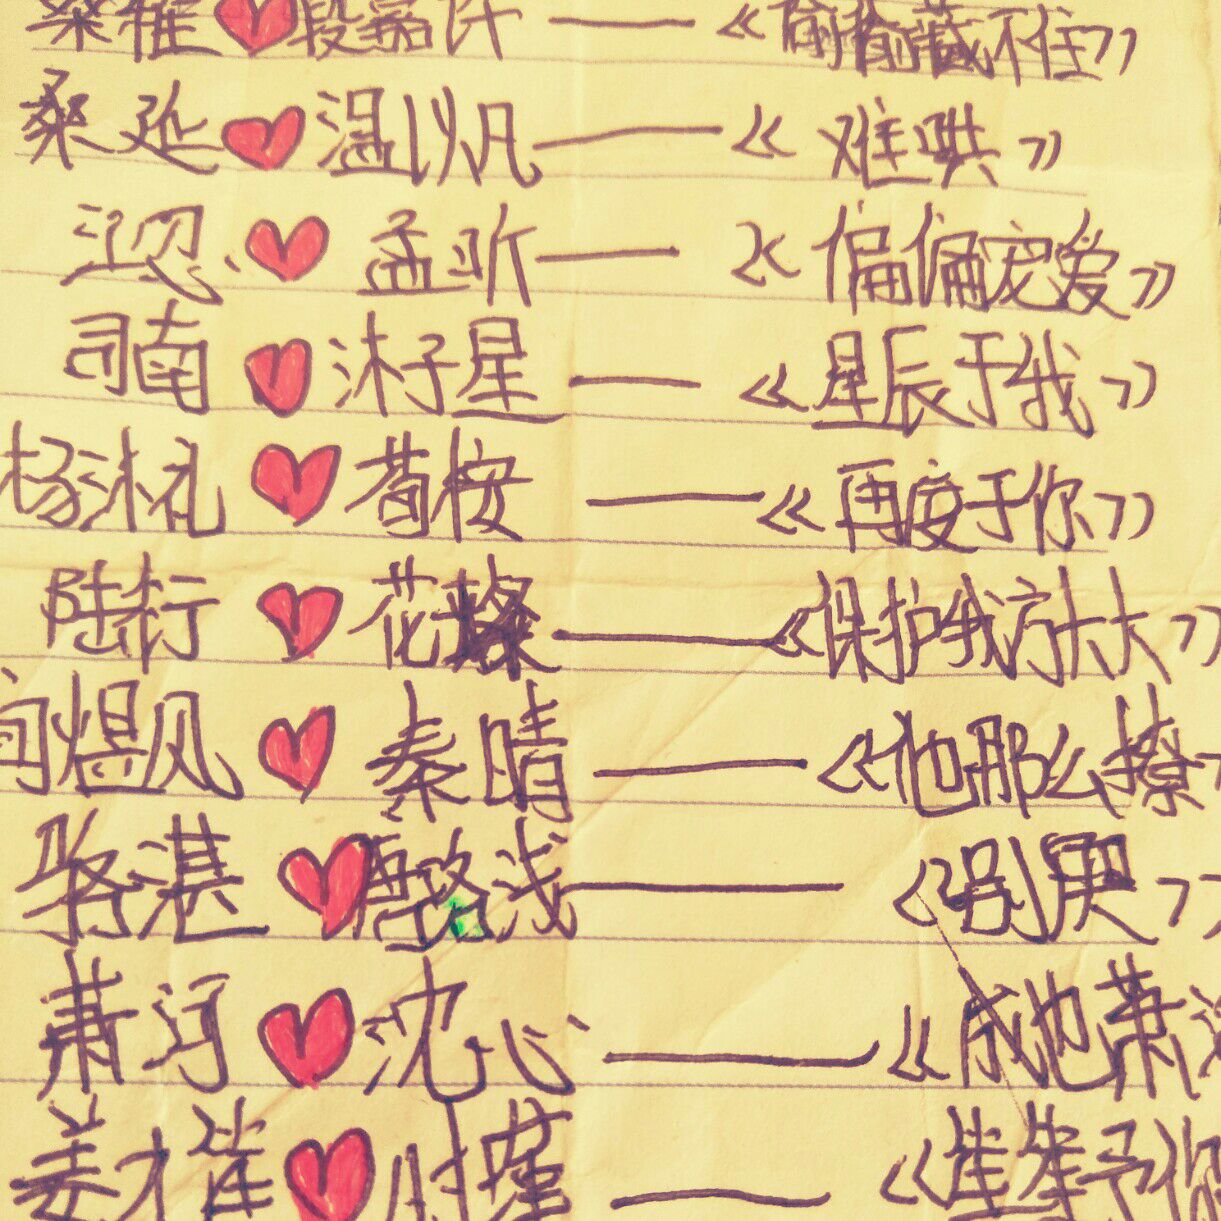 桑稚❤段嘉许——《偷偷藏不住》
桑延❤温以凡——《难哄》
江忍❤孟听——《偏偏宠爱》
司南❤沐子星——《星辰于我》
杨沐礼❤荀桉——《再度于你》
陆行❤花——《保护我方大大》
闻煜风❤秦晴——《他那么撩
骆湛❤唐染浅——《别哭》
萧河❤沈心——《成池萧
姜才崔❤时瑾——《笙笙予你